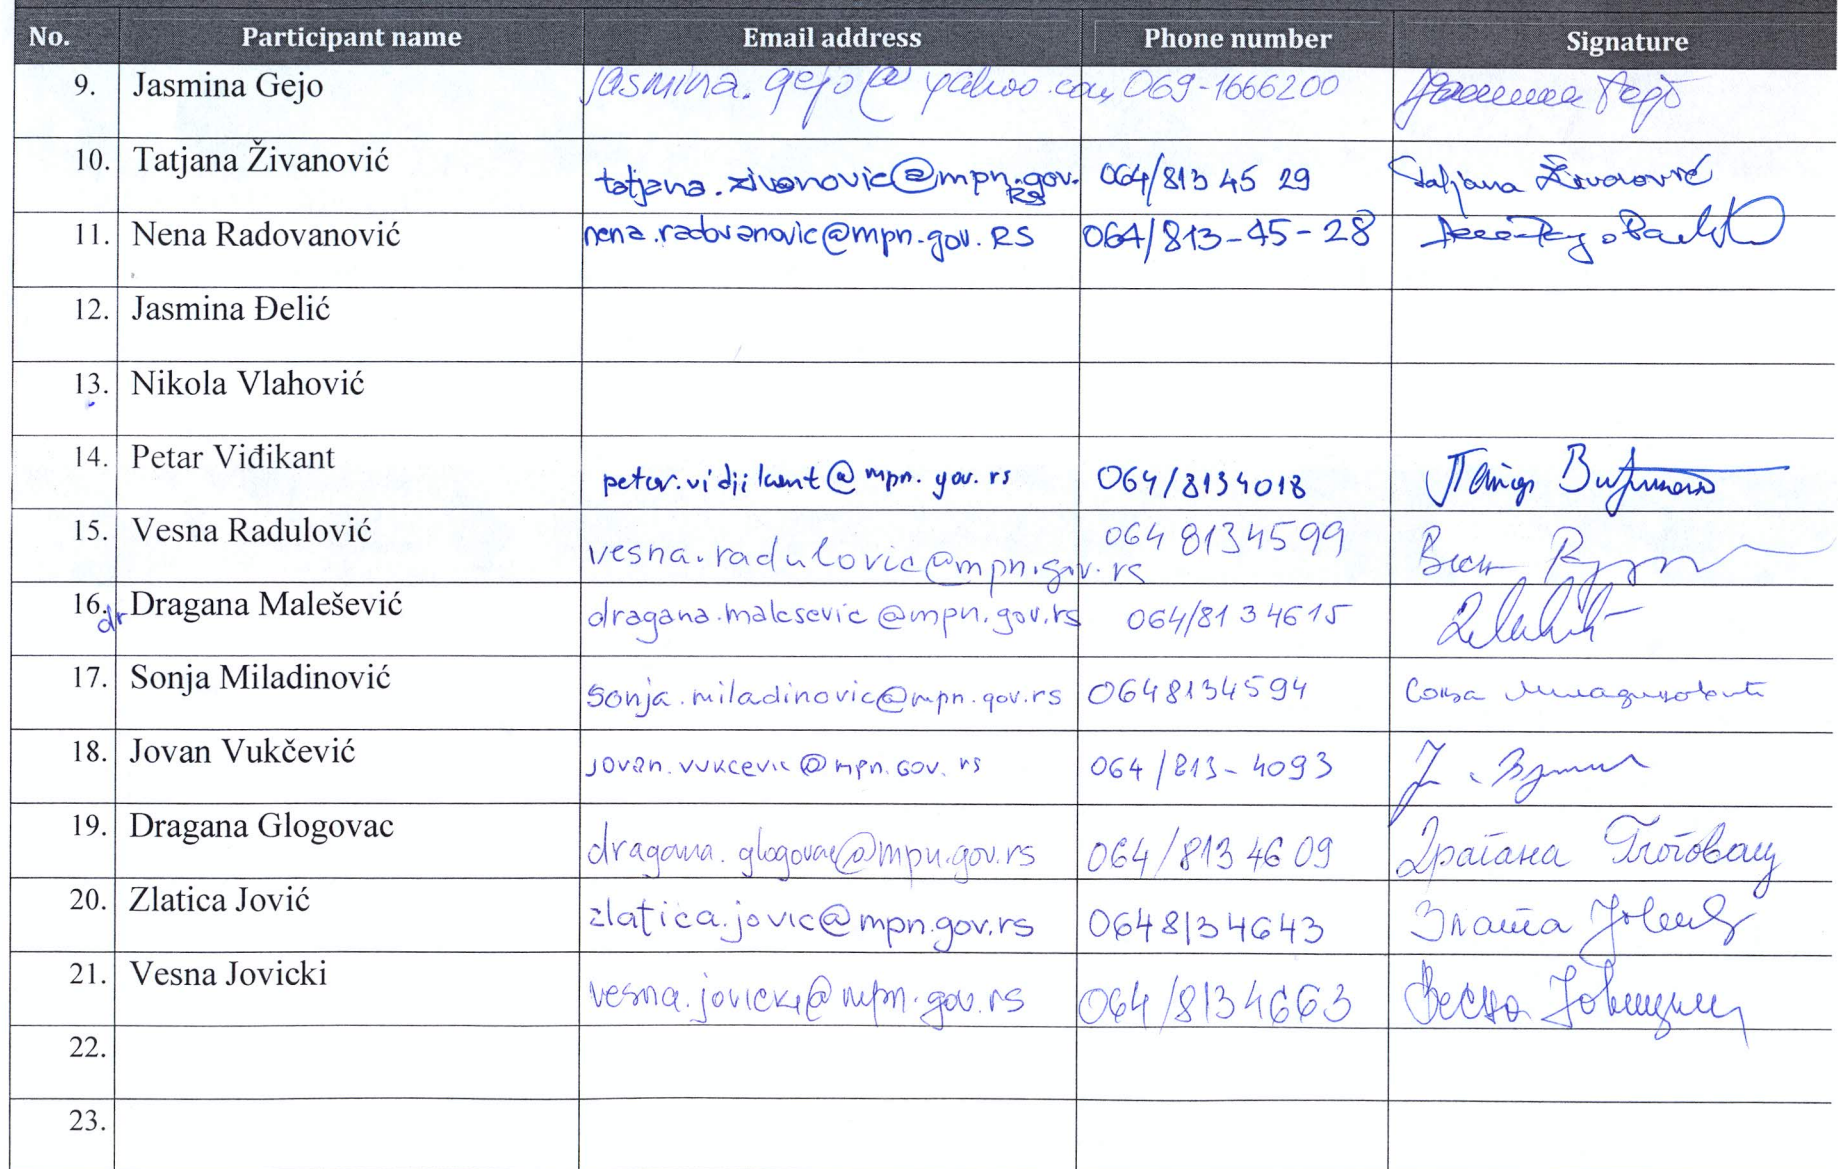 No. Participant name Email address Phone number Signature
9. Jasmina Gejo jasmina.gejo@yahoo.com 069-1666200
10. Tatjana Živanović tatjana.zivanovic@mpn.gov. 064/813 45 29 Tatjana Živanović
RS
11. Nena Radovanović nena.radovanovic@mpn.gov.RS 064/813-45-28
12. Jasmina Đelić
13. Nikola Vlahović
14. Petar Viđikant petar.vidjikant@mpn.gov.rs 064/8134018
15. Vesna Radulović vesna.radulovic@mpn.gov.rs 064 8134599
16. dr Dragana Malešević dragana.malesevic@mpn.gov.rs 064/81 34615
17. Sonja Miladinović sonja.miladinovic@mpn.gov.rs 0648134594 Соња Миладиновић
18. Jovan Vukčević jovan.vukcevic@mpn.gov.rs 064/813-4093
19. Dragana Glogovac dragana.glogovac@mpn.gov.rs 064/813 46 09 Драгана Глоговац
20. Zlatica Jović zlatica.jovic@mpn.gov.rs 0648134643
21. Vesna Jovicki vesna.jovicki@mpn.gov.rs 064/8134663 Весна Јовицки
22.
23.